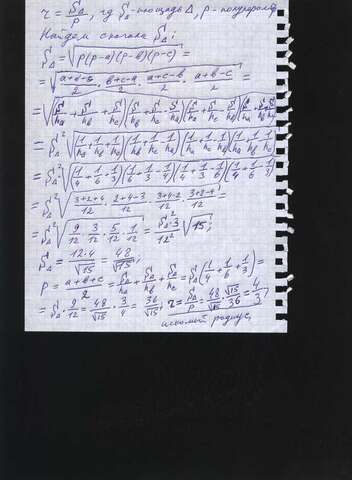 r = S△/p, где S△ - площадь △, p - полупериметр
Найдем сначала S△:
S△ = √(p(p-a)(p-b)(p-c)) =
= √((a+b+c)/2 · (b+c-a)/2 · (a+c-b)/2 · (a+b-c)/2) =
= √((S/ha + S/hb + S/hc)(S/hb + S/hc - S/ha)(S/ha + S/hc - S/hb)(S/ha + S/hb - S/hc)) =
= S△² √((1/ha + 1/hb + 1/hc)(1/hb + 1/hc - 1/ha)(1/ha + 1/hc - 1/hb)(1/ha + 1/hb - 1/hc)) =
= S△² √((1/4 + 1/6 + 1/3)(1/6 + 1/3 - 1/4)(1/4 + 1/3 - 1/6)(1/4 + 1/6 - 1/3)) =
= S△² √((3+2+4)/12 · (2+4-3)/12 · (3+4-2)/12 · (3+2-4)/12) =
= S△² √(9/12 · 3/12 · 5/12 · 1/12) = S△²·3/12² √15;
S△ = 12·4/√15 = 48/√15;
p = (a+b+c)/2 = S△/ha + S△/hb + S△/hc = S△(1/4 + 1/6 + 1/3) =
= S△ · 9/12 = 48/√15 · 3/4 = 36/√15; r = S△/p = 48/√15 · √15/36 = 4/3,
искомый радиус.